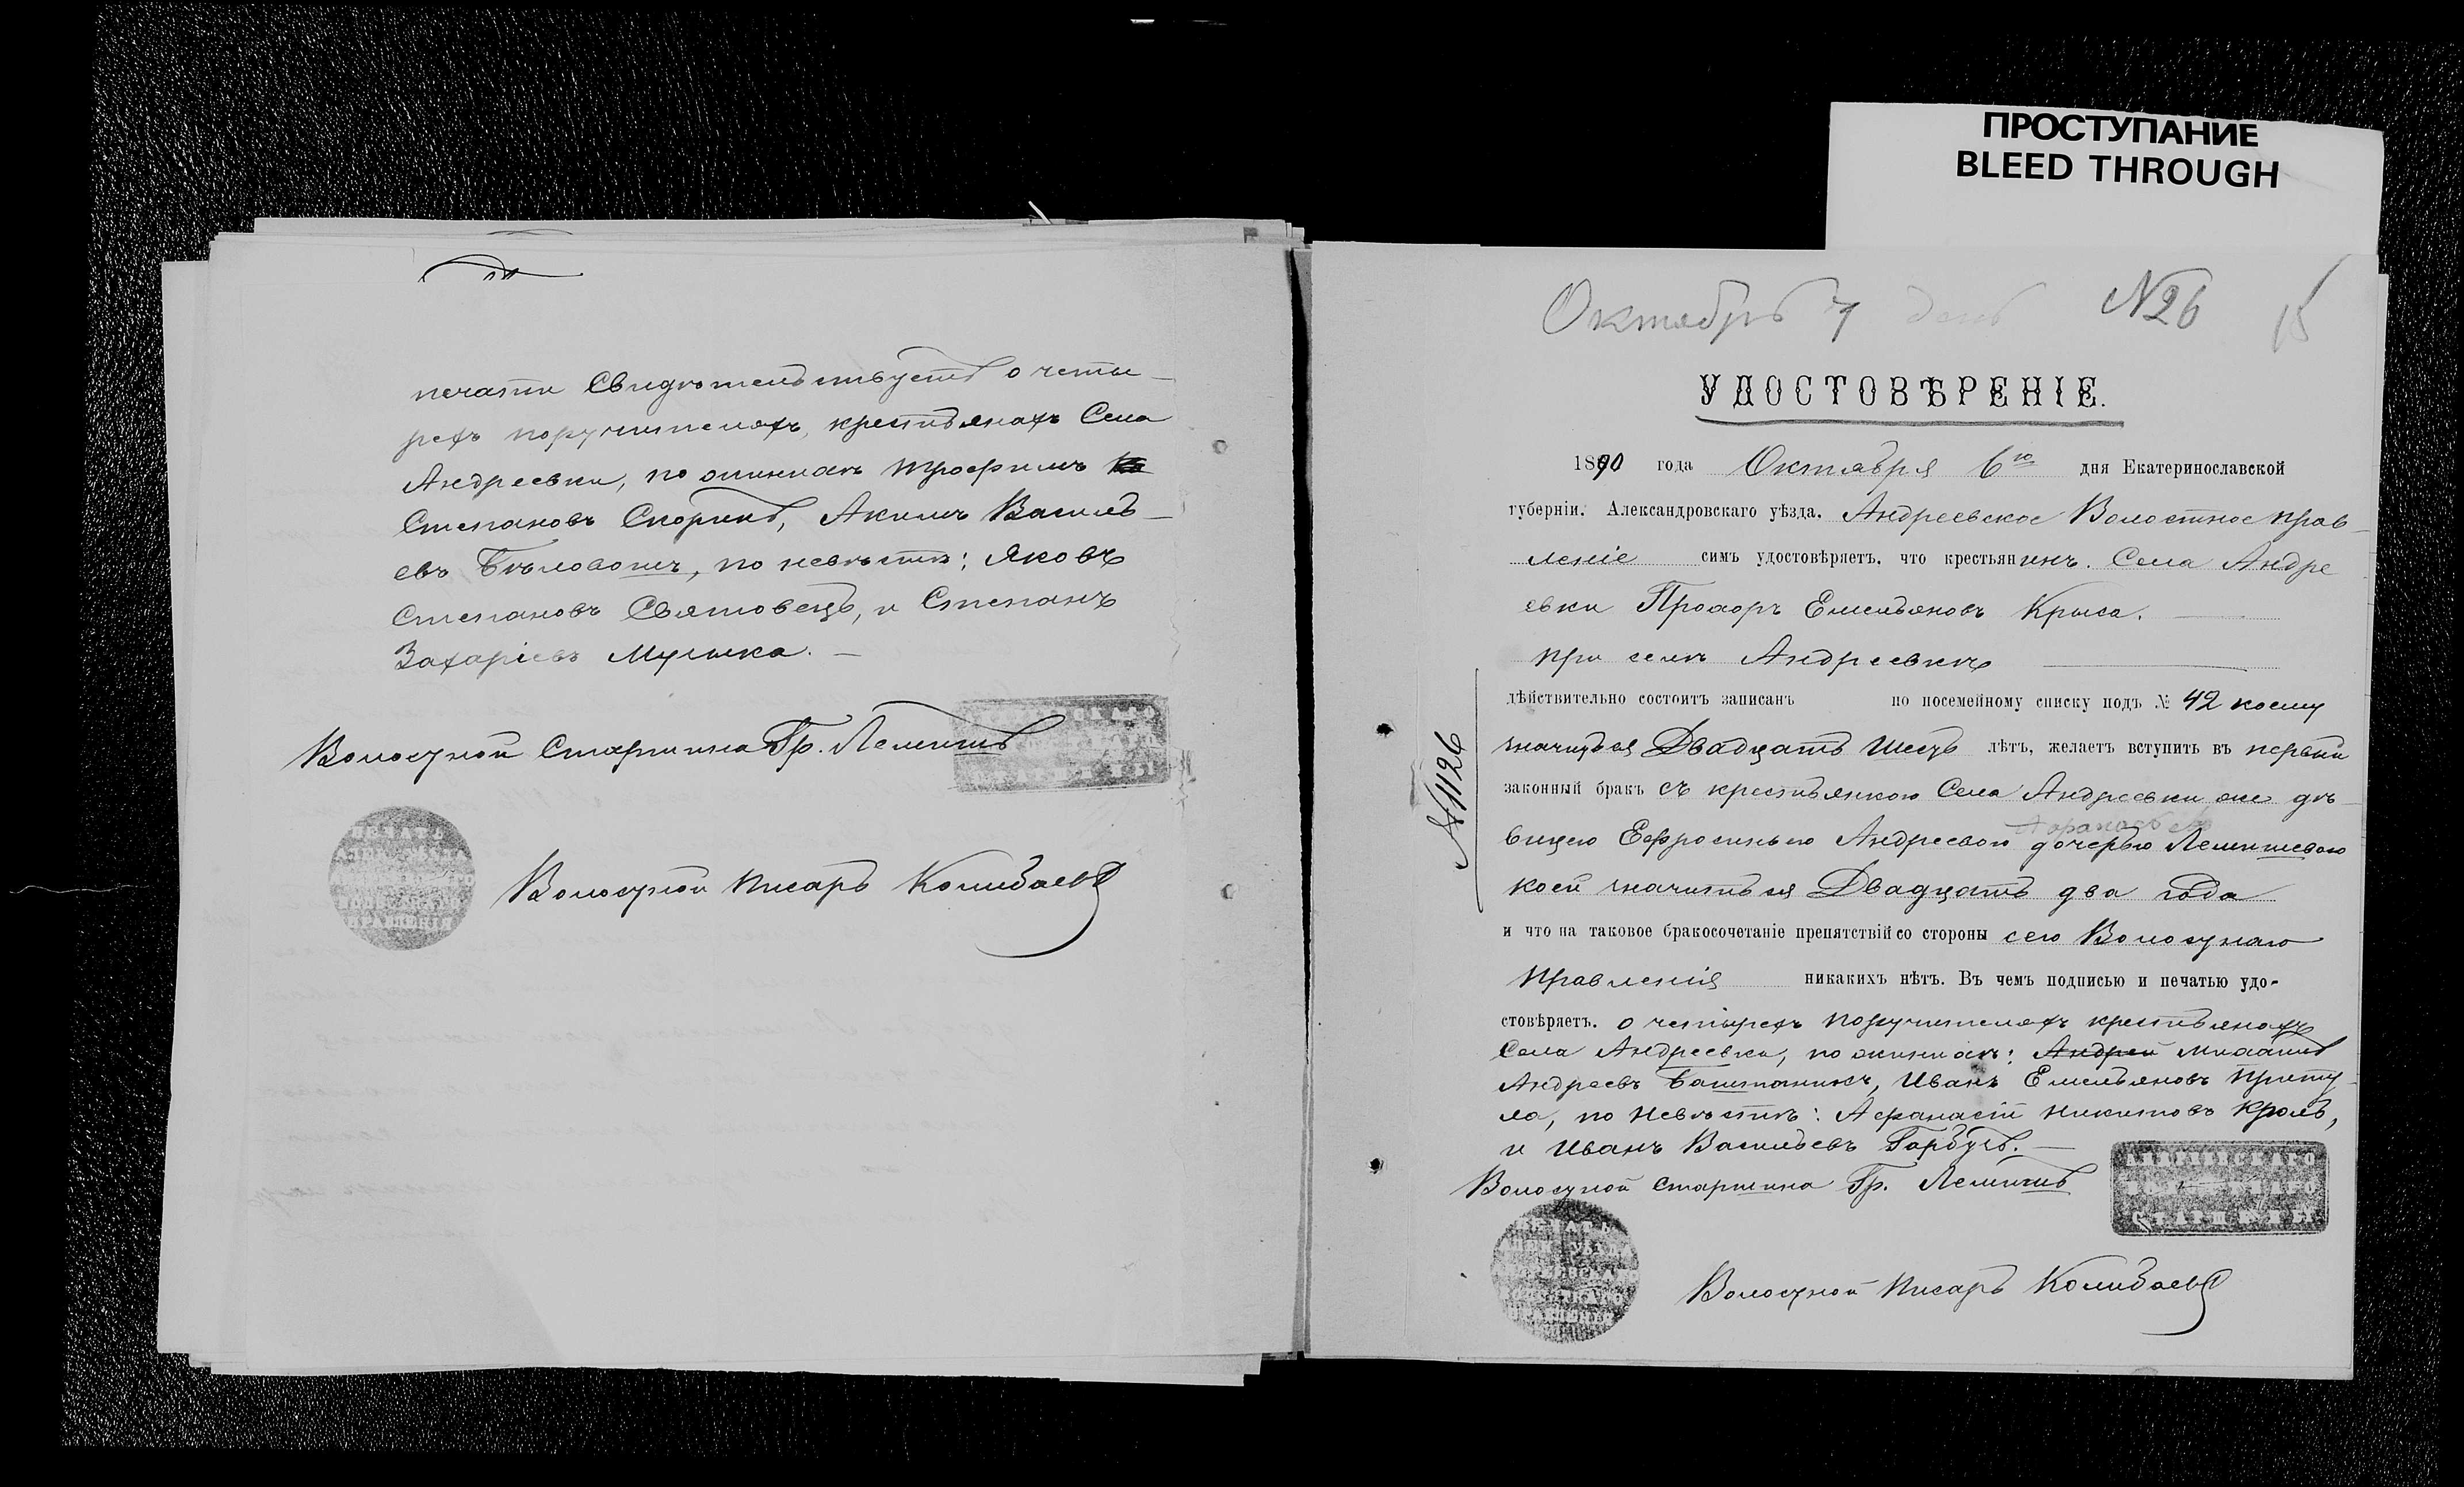 ПРОСТУПАНИЕ
BLEED THROUGH
печати Свидѣтельствуетъ о четы-
рехъ поручителяхъ, крестьянахъ Села
Андреевки, по женихѣ Трофимъ
Степановъ Скорикъ, Акимъ Василь-
евъ Бѣловолъ, по невѣстѣ: Яковъ
Степановъ Святовецъ, и Степанъ
Захаріевъ Мулыка.
Волостной Старшина Гр. Лемишъ
Волостной Писарь
Октябрь 7 день №26
УДОСТОВѢРЕНІЕ.
1890 года Октября 6го дня Екатеринославской
губерніи. Александровскаго уѣзда. Андреевское Волостное Прав-
леніе симъ удостовѣряетъ, что крестьянинъ. Села Андре
евки Прохоръ Емельяновъ Крыса.
при селѣ Андреевкѣ
дѣйствительно состоитъ записанъ по посемейному списку подъ № 42 коему
значится Двадцать Шесть лѣтъ, желаетъ вступить въ первый
законный бракъ съ крестьянкою Села Андреевки же дѣ-
вицею Ефросиньею Андреевою дочерью Лемишевою
коей значится Двадцать два года
и что на таковое бракосочетаніе препятствій со стороны сего Волостнаго
Правленія никакихъ нѣтъ. Въ чемъ подписью и печатью удо-
стовѣряетъ. о четырехъ поручителяхъ крестьянахъ
Села Андреевки, по женихѣ: Андрей Михаилъ
Андреевъ Баштанникъ, Иванъ Емельяновъ Приту-
ла, по невѣстѣ: Афанасій Никитовъ Кроль,
и Иванъ Васильевъ Гарбузъ.
Волостной Старшина Гр. Лемишъ
Волостной Писарь
№1126